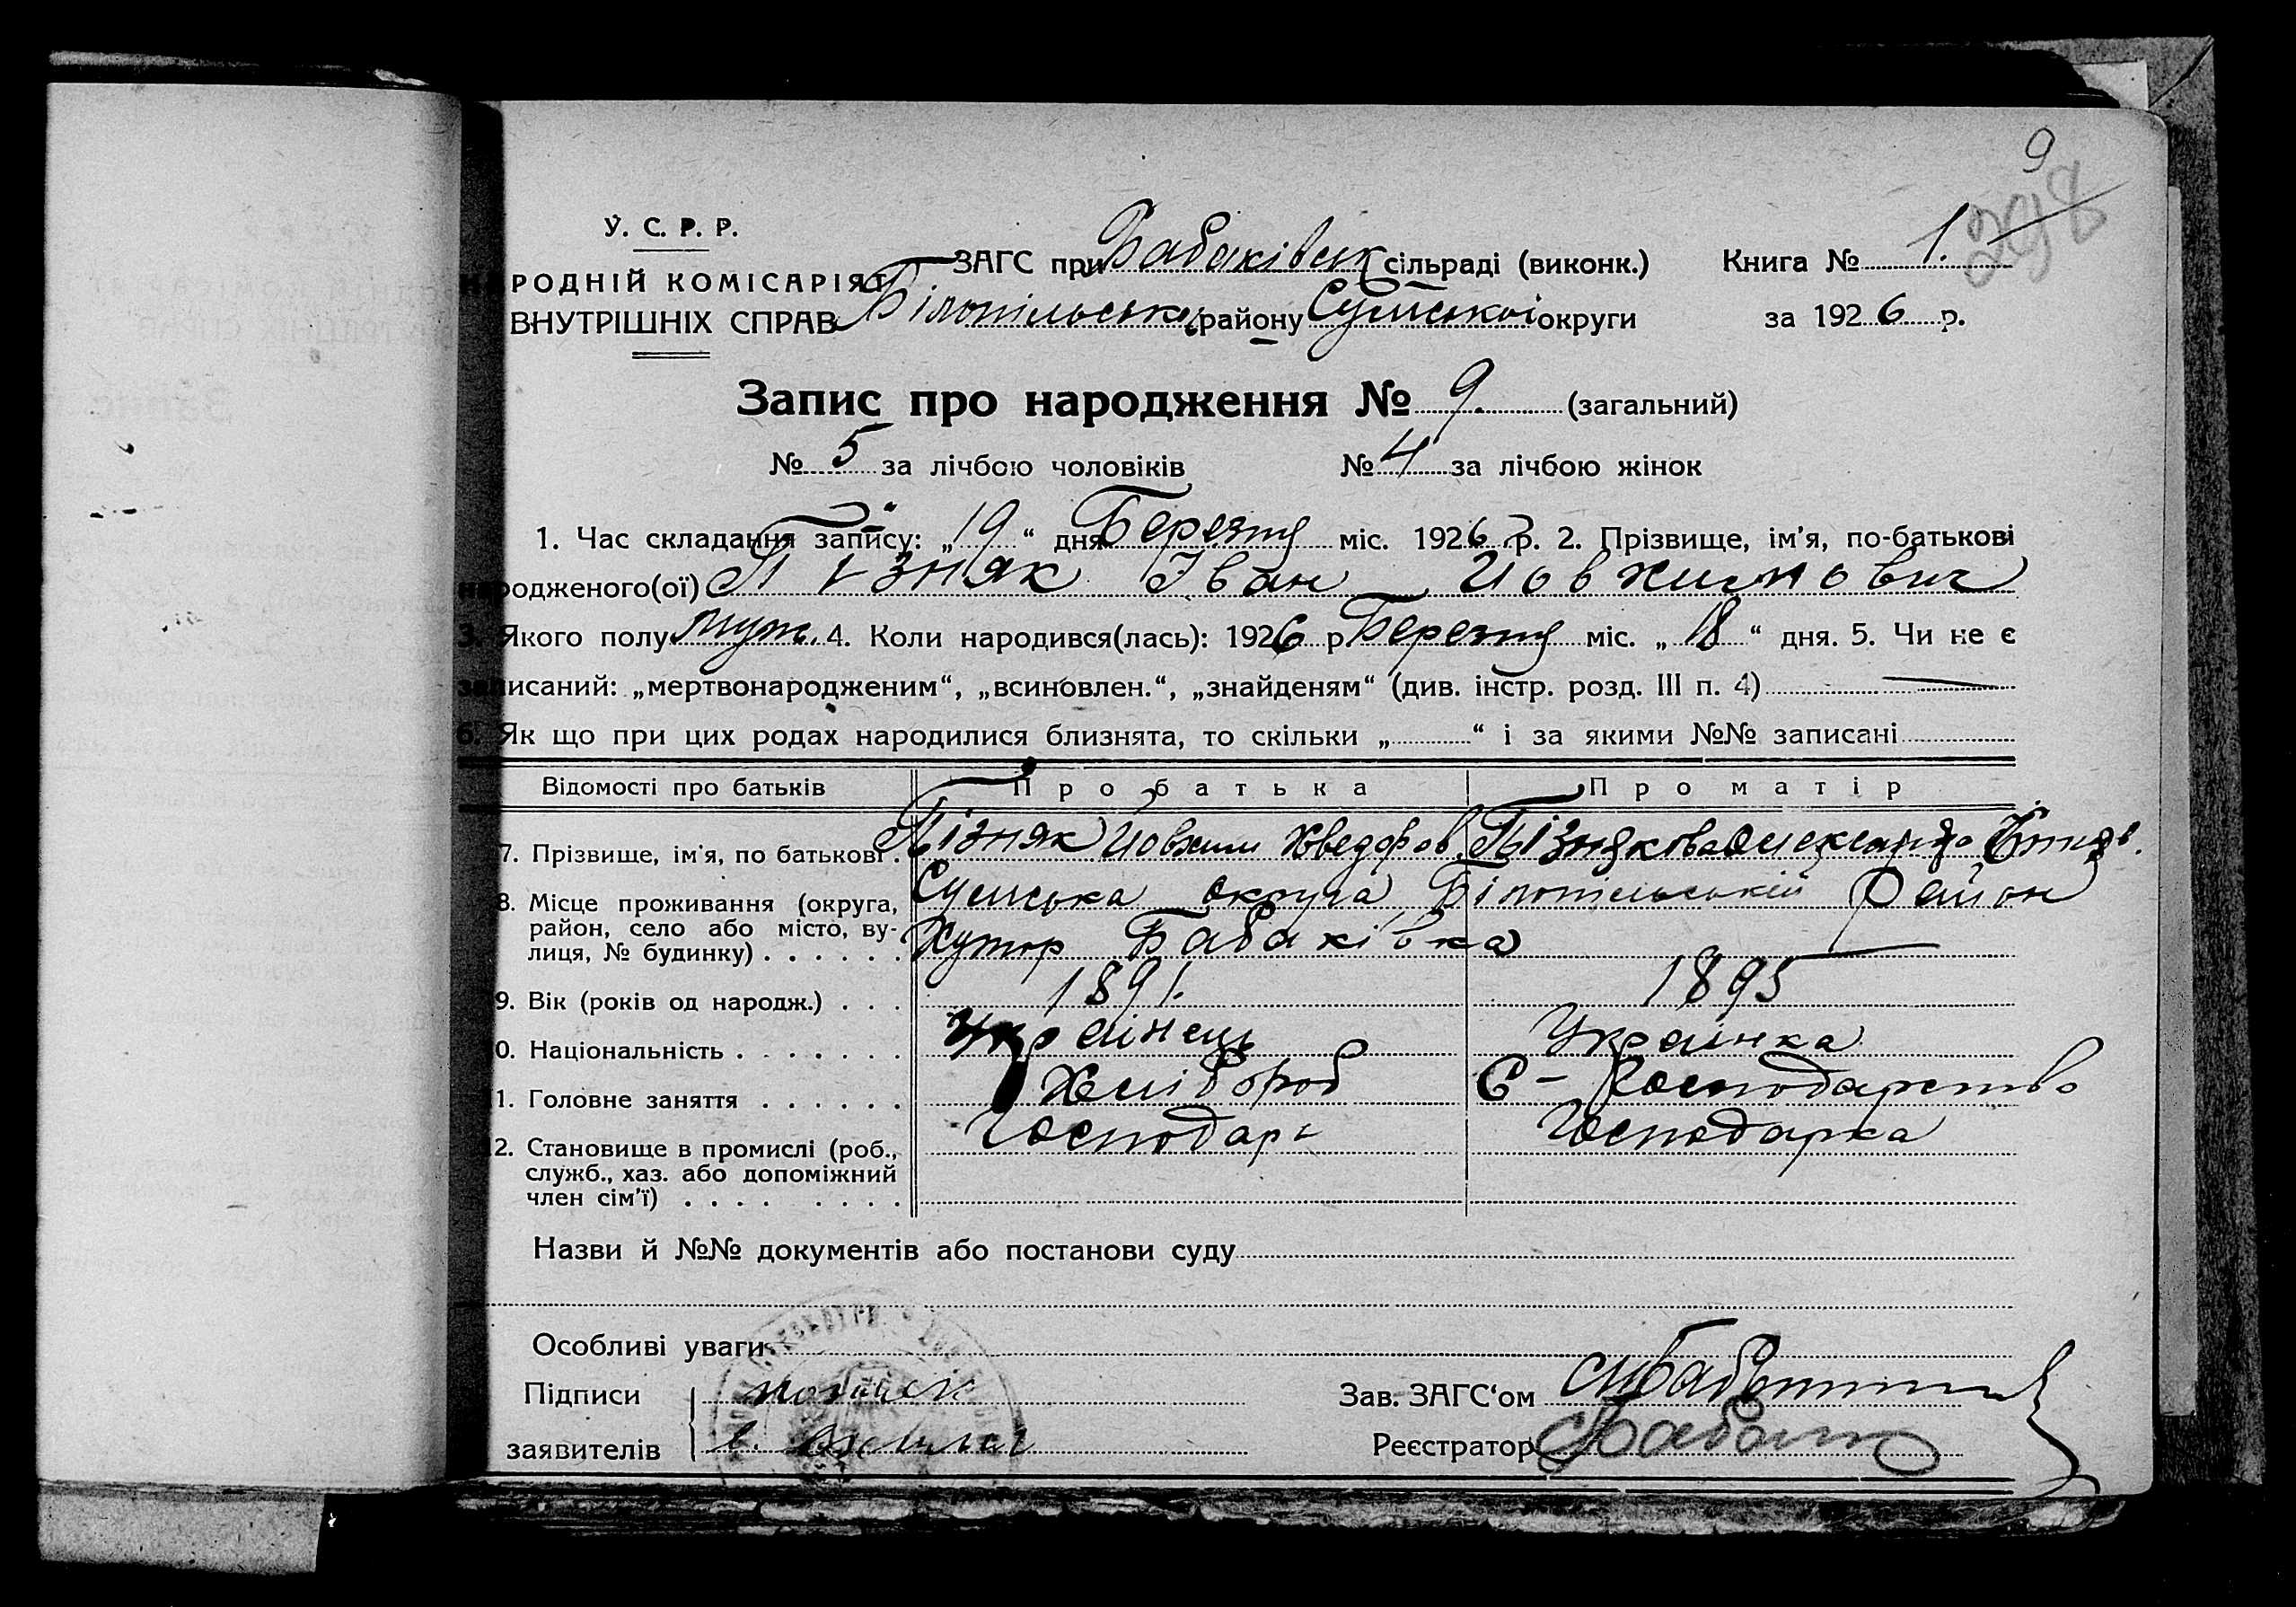 9
298
У. С. Р. Р.
НАРОДНІЙ КОМІСАРІЯТ
ВНУТРІШНІХ СПРАВ
ЗАГС при Бабаківськ сільраді (виконк.)
Білопільськ району Сумської округи
Книга № 1.
за 1926 р.
Запис про народження № 9. (загальний)
№ 5 за лічбою чоловіків № 4 за лічбою жінок
1. Час складання запису: „19“ дня Березня міс. 1926 р. 2. Прізвище, ім'я, по-батькові
народженого(ої) Пізняк Іван Йовхимович
3. Якого полу муж. 4. Коли народився(лась): 1926 р. Березня міс. „18“ дня. 5. Чи не є
записаний: „мертвонародженим“, „всиновлен.“, „знайденям“ (див. інстр. розд. III п. 4)
6. Як що при цих родах народилися близнята, то скільки „ “ і за якими №№ записані
Відомості про батьків Про батька Про матір
7. Прізвище, ім'я, по батькові . Пізняк Йовхим Хведоров. Пізнякова Олександра
8. Місце проживання (округа, Сумська округа Білопільській Район
район, село або місто, ву- Хутор Бабаківка
лиця, № будинку) . . . . . .
9. Вік (років од народж.) . . . 1891. 1895
0. Національність . . . . . . . Українець Українка
1. Головне заняття . . . . . . Хлібороб С-Господарство
2. Становище в промислі (роб., Господарь Господарка
служб., хаз. або допоміжний
член сім'ї) . . . . . . . . .
Назви й №№ документів або постанови суду
Особливі уваги
Підписи
заявителів
Зав. ЗАГС‘ом
Реєстратор